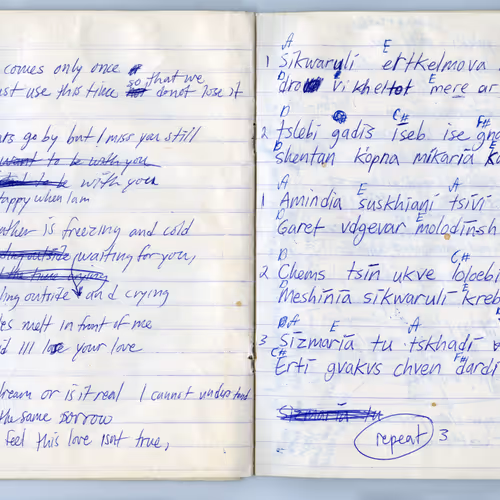 comes only once
so that we
use this time do not lose it
go by but I miss you still
want to be with you
to be with you
happy when I am
is freezing and cold
waiting for you,
outside and crying
melt in front of me
I'll lose your love
dream or is it real I cannot understand
the same sorrow
feel this love isnt true,
A E
1 Sikwaruli ertkelmova
D E
vikheltot mere ar
D C# F#
2 tslebi gadis iseb ise
D E
shentan kopna mikaria
A E A
1 Amindia suskhiani tsivi
D E
Garet vdgevar molodin-sh
D C#
2 Chems tsin ukve
D E
Meshinia sikwaruli
A E A
3 Sizmaria tu tskhadi
C# F#
Erti gvakvs chven dardi
sizmaria tu
repeat 3